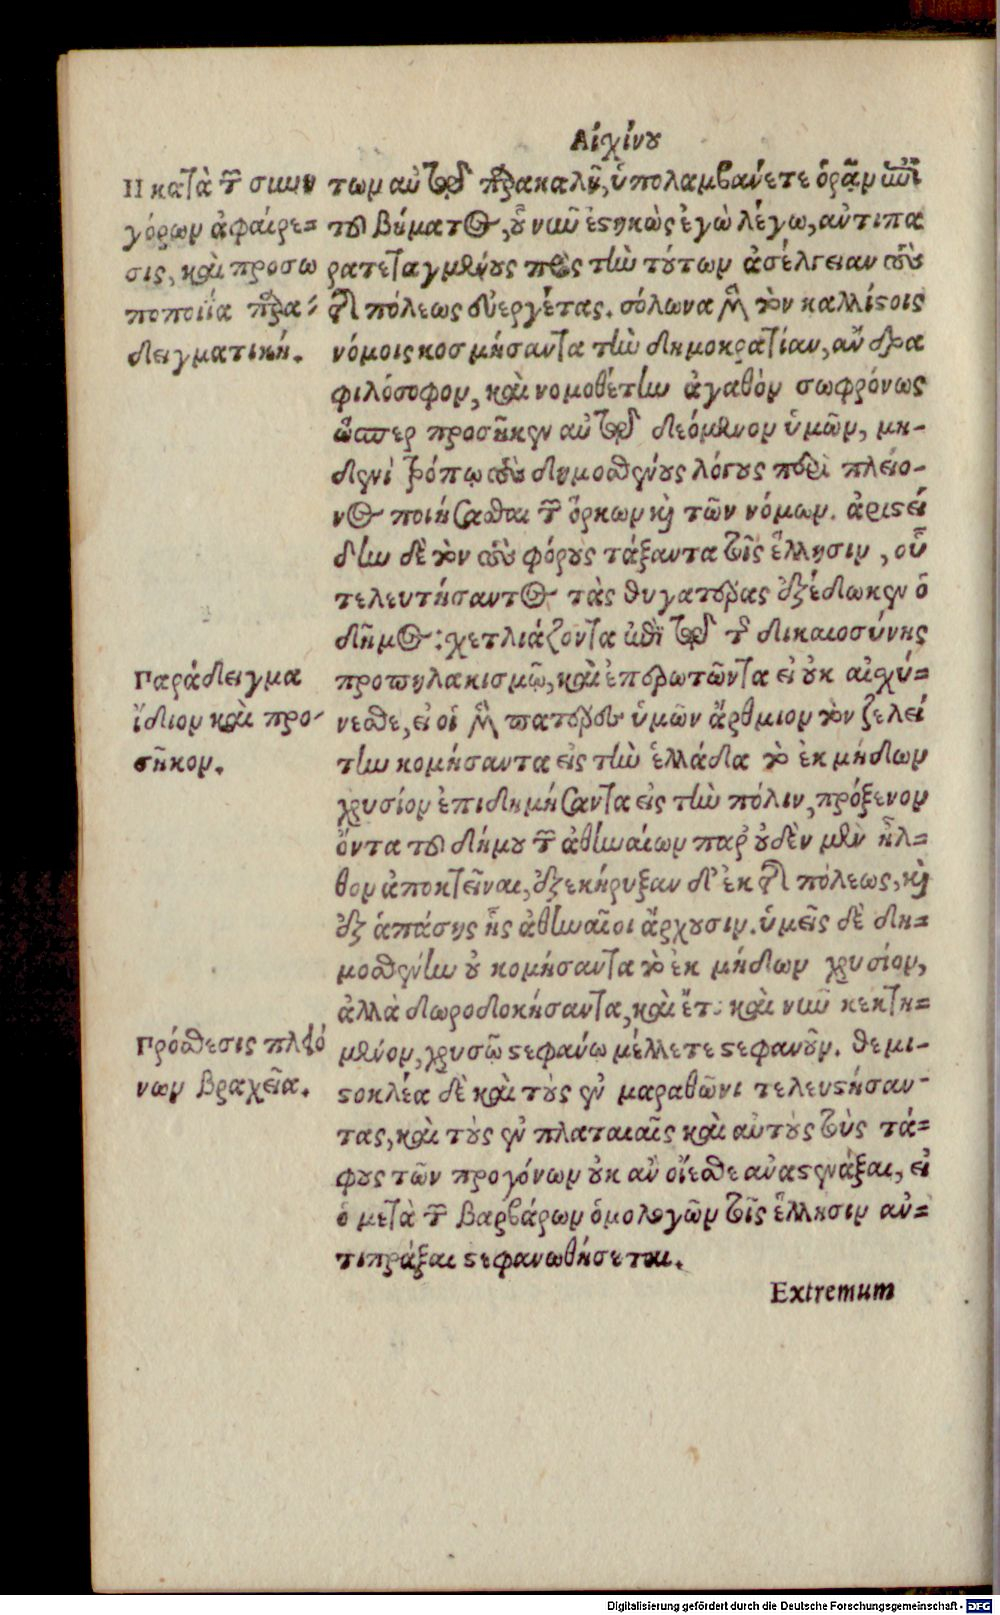 Αἰχίνου
Η κατὰ τῶν συνη
γόρων ἀφαίρε=
σις, καὶ προσω
ποποιΐα παρα=
δειγματική.
Παράδειγμα
ἴδιον καὶ προ-
σῆκον.
Πρόσθεσις πλειό
νων βραχεῖα.
των αὐτῷ παρακαλῇ, ὑπολαμβάνετε ὁρᾶν ἐπὶ
τοῦ βήματος, οὗ νῦν ἑστηκὼς ἐγὼ λέγω, ἀντιπα
ρατεταγμένους πρὸς τὴν τούτων ἀσέλγειαν τοὺς
τῆς πόλεως εὐεργέτας. σόλωνα μὲν τὸν καλλίστοις
νόμοις κοσμήσαντα τὴν δημοκρατίαν, ἄνδρα
φιλόσοφον, καὶ νομοθέτην ἀγαθὸν σωφρόνως
ὥσπερ προσῆκεν αὐτῷ δεόμενον ὑμῶν, μη-
δενὶ τρόπῳ τοὺς δημοσθένους λόγους περὶ πλείο-
νος ποιήσασθαι τῶν ὅρκων καὶ τῶν νόμων. ἀριστεί
δην δὲ τὸν τοὺς φόρους τάξαντα τοῖς ἕλλησιν, οὗ
τελευτήσαντος τὰς θυγατέρας ἐξέδωκεν ὁ
δῆμος: χετλιάζοντα ἐπὶ τῷ τῆς δικαιοσύνης
προπηλακισμῷ, καὶ ἐπερωτῶντα εἰ οὐκ αἰσχύ=
νεσθε, εἰ οἱ μὲν πατέρες ὑμῶν ἄρθμιον τὸν ζελεί
την κομήσαντα εἰς τὴν ἑλλάδα τὸ ἐκ μήδων
χρυσίον ἐπιδημήσαντα εἰς τὴν πόλιν, πρόξενον
ὄντα τοῦ δήμου τῶν ἀθηναίων παρ' οὐδὲν μὲν ἦλ=
θον ἀποκτεῖναι, ἐξεκήρυξαν δ' ἐκ τῆς πόλεως, καὶ
ἐξ ἁπάσης ἧς ἀθηναῖοι ἄρχουσιν. ὑμεῖς δὲ δη=
μοσθένην οὐ κομήσαντα τὸ ἐκ μήδων χρυσίον,
ἀλλὰ δωροδοκήσαντα, καὶ ἔτι καὶ νῦν κεκτη=
μένον, χρυσῷ στεφάνῳ μέλλετε στεφανοῦν. θεμι-
στοκλέα δὲ καὶ τοὺς ἐν μαραθῶνι τελευτήσαν-
τας, καὶ τοὺς ἐν πλαταιαῖς καὶ αὐτοὺς τοὺς τά=
φους τῶν προγόνων οὐκ ἂν οἴεσθε ἀναστενάξαι, εἰ
ὁ μετὰ τῶν βαρβάρων ὁμολογῶν τοῖς ἕλλησιν ἀν=
τιπράξαι στεφανωθήσεται.
Extremum
Digitalisierung gefördert durch die Deutsche Forschungsgemeinschaft - DFG